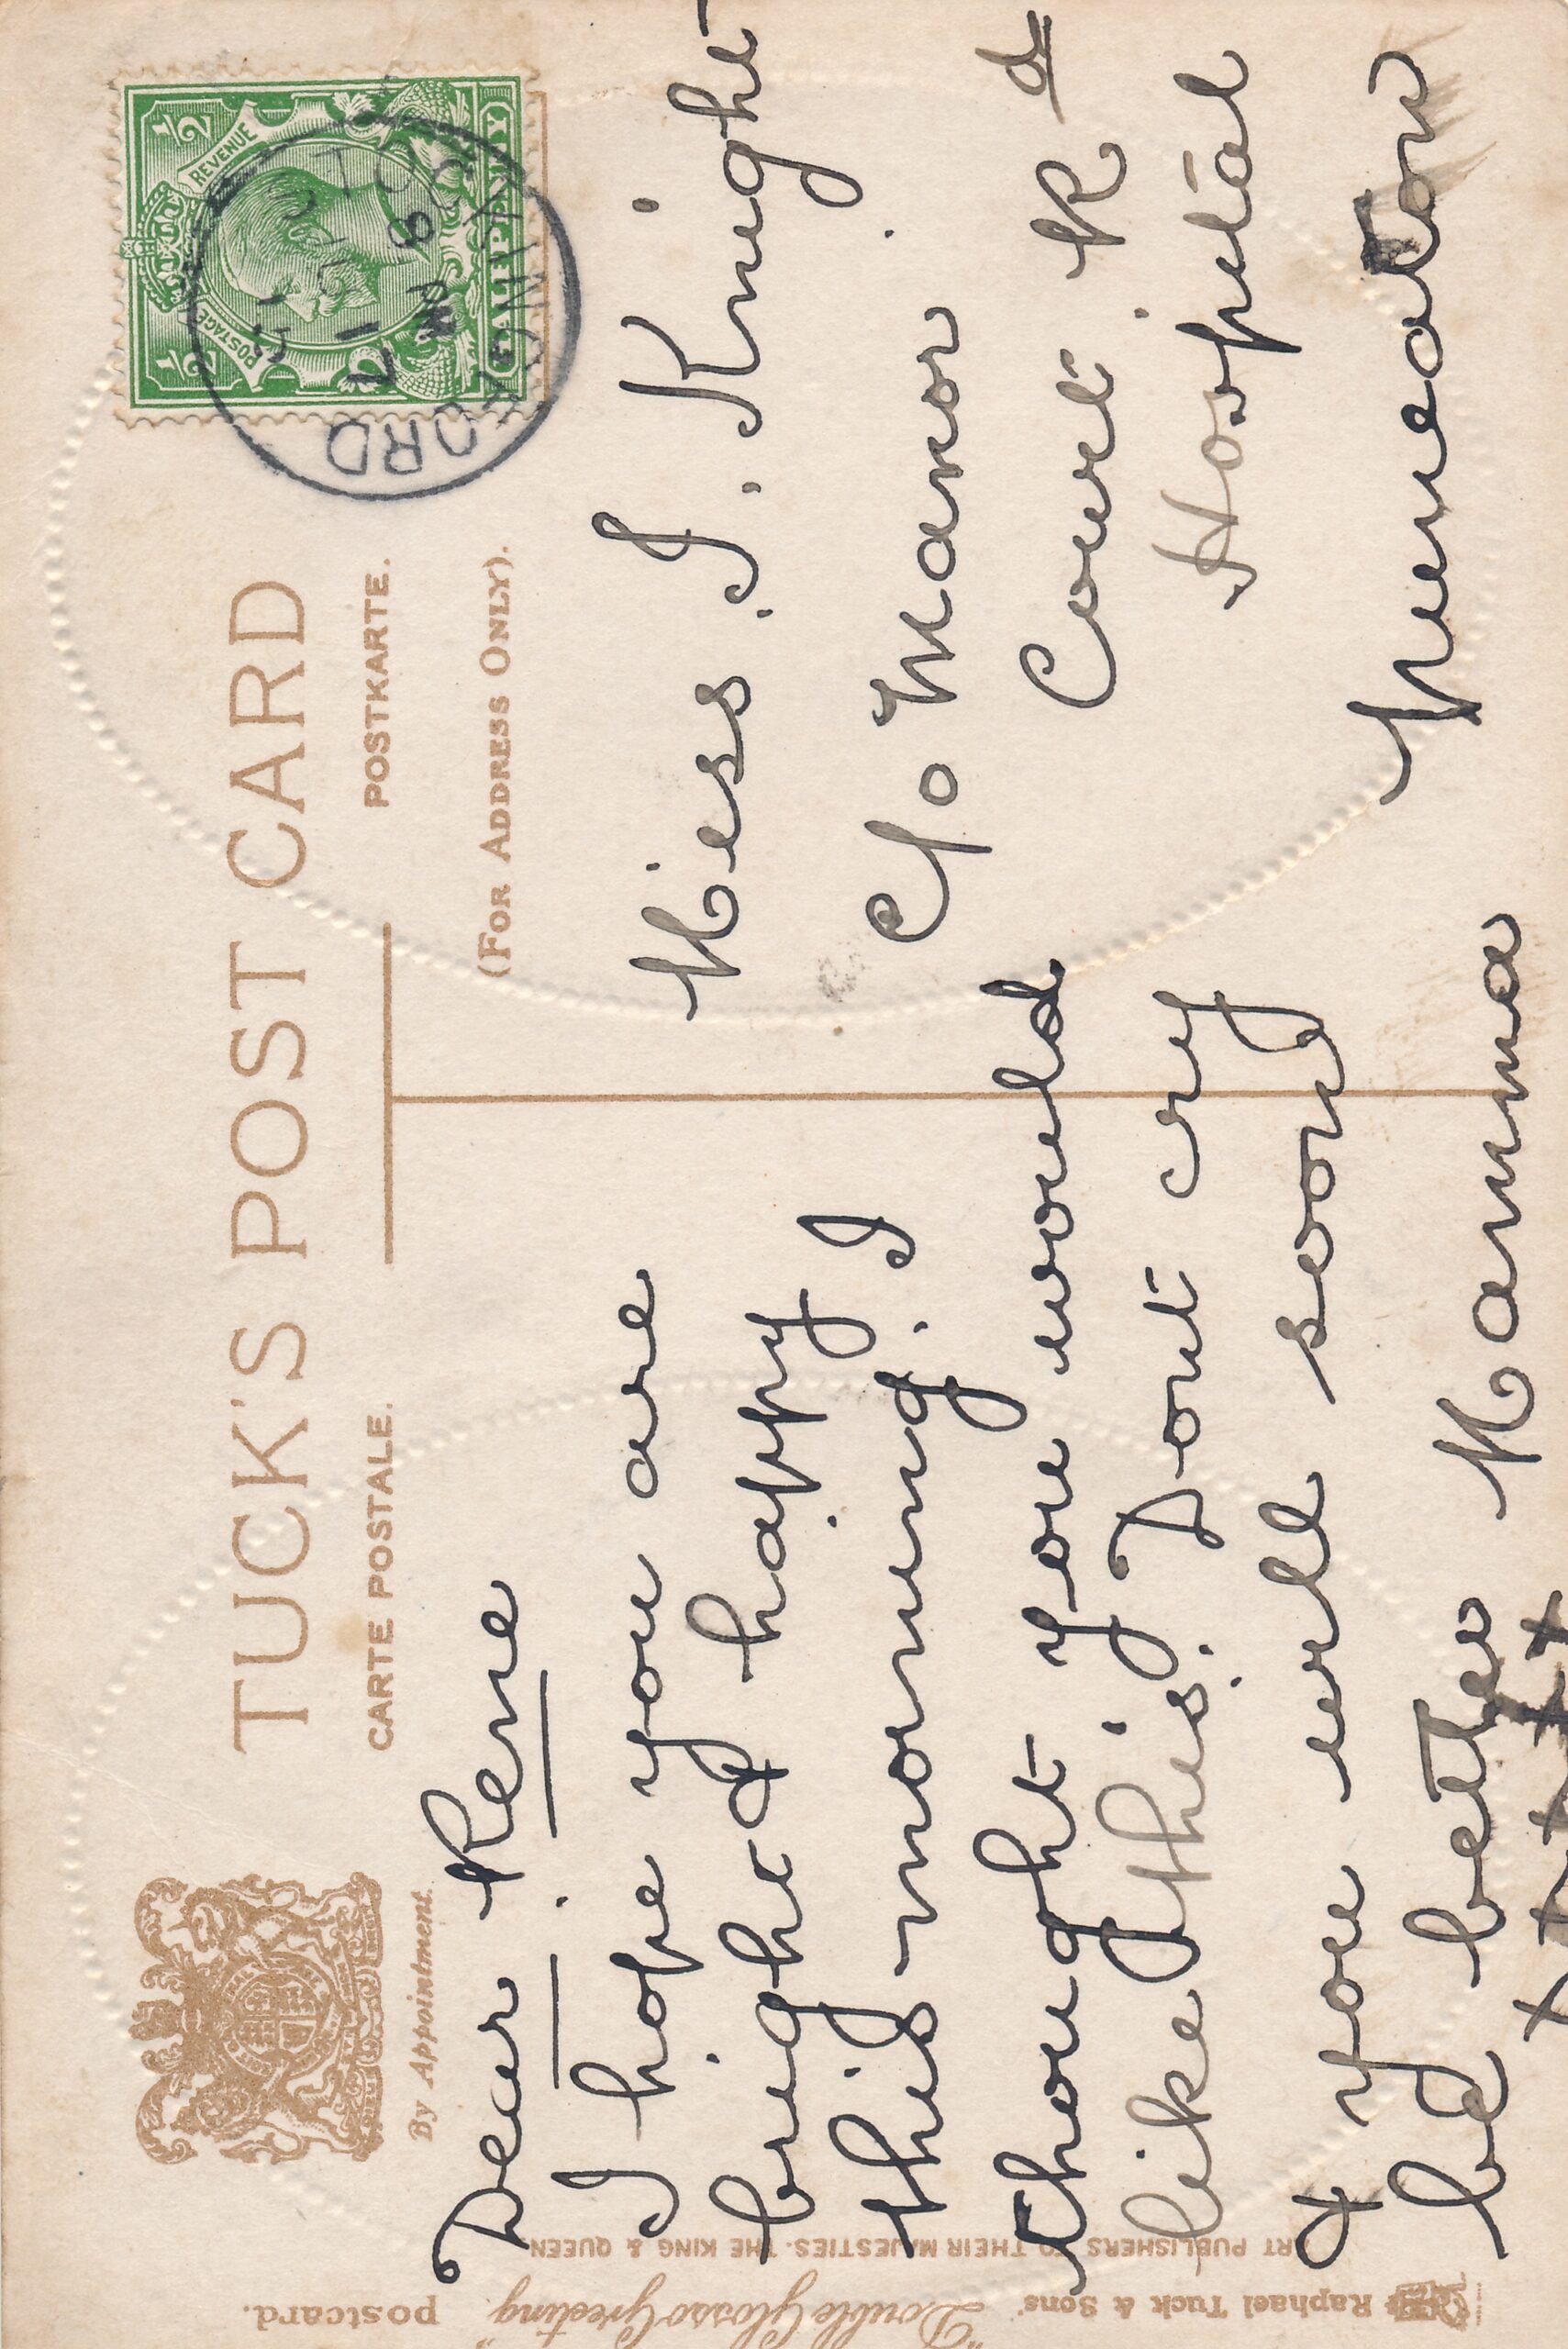 TUCK'S POST CARD
CARTE POSTALE.
POSTKARTE.
By Appointment.
(FOR ADDRESS ONLY).
Dear Rene
I hope you are
bright & happy
this morning. I
thought you would
like this. Dont cry
& you will soon
be better Mamma
Miss I. Knight
C/o Manor
Court Rd
Hospital
Nuneaton
POSTAGE
REVENUE
½
½
HALFPENNY
6 PM
17
Raphael Tuck & Sons' "Double Glosso Greeting" postcard.
ART PUBLISHERS TO THEIR MAJESTIES THE KING & QUEEN